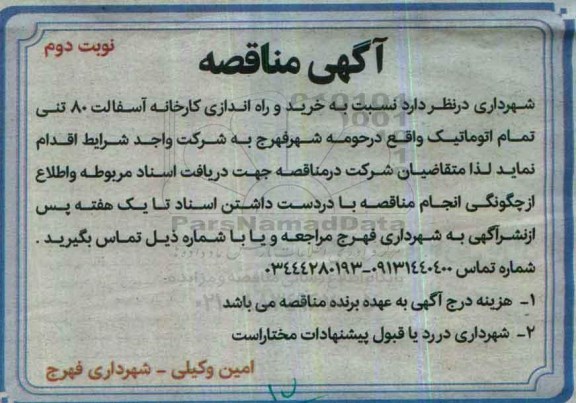 نوبت دوم
آگهی مناقصه
شهرداری درنظر دارد نسبت به خرید و راه اندازی کارخانه آسفالت ۸۰ تنی
تمام اتوماتیک واقع درحومه شهرفهرج به شرکت واجد شرایط اقدام
نماید لذا متقاضیان شرکت درمناقصه جهت دریافت اسناد مربوطه واطلاع
ازچگونگی انجام مناقصه با دردست داشتن اسناد تا یک هفته پس
ازنشرآگهی به شهرداری فهرج مراجعه و یا با شماره ذیل تماس بگیرید .
شماره تماس ۰۹۱۳۱۴۴۰۴۰۰-۰۳۴۴۴۲۸۰۱۹۳
۱- هزینه درج آگهی به عهده برنده مناقصه می باشد
۲- شهرداری دررد یا قبول پیشنهادات مختاراست
امین وکیلی - شهرداری فهرج
ParsNamadData